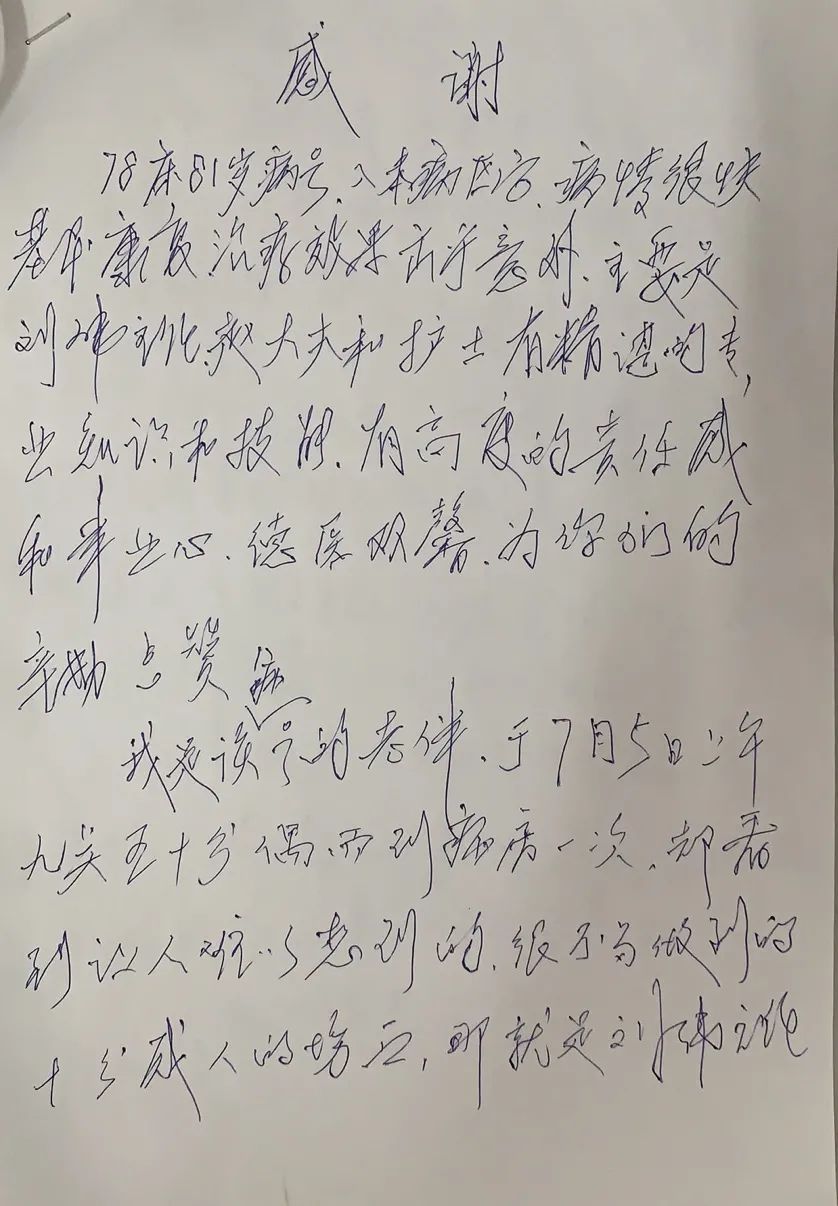 感 谢
78床81岁病号、入本病区后、病情很快
基本康复,治疗效果出乎意外、主要是
刘伟主任,赵大夫和护士有精湛的专
业知识和技能、有高度的责任感
和事业心、德医双馨、为你们的
辛勤点赞
我是该病号的老伴、于7月5日上午
九点五十分偶而到病房一次、却看
到让人难以想到的、很不易做到的
十分感人的场面,那就是刘伟主任